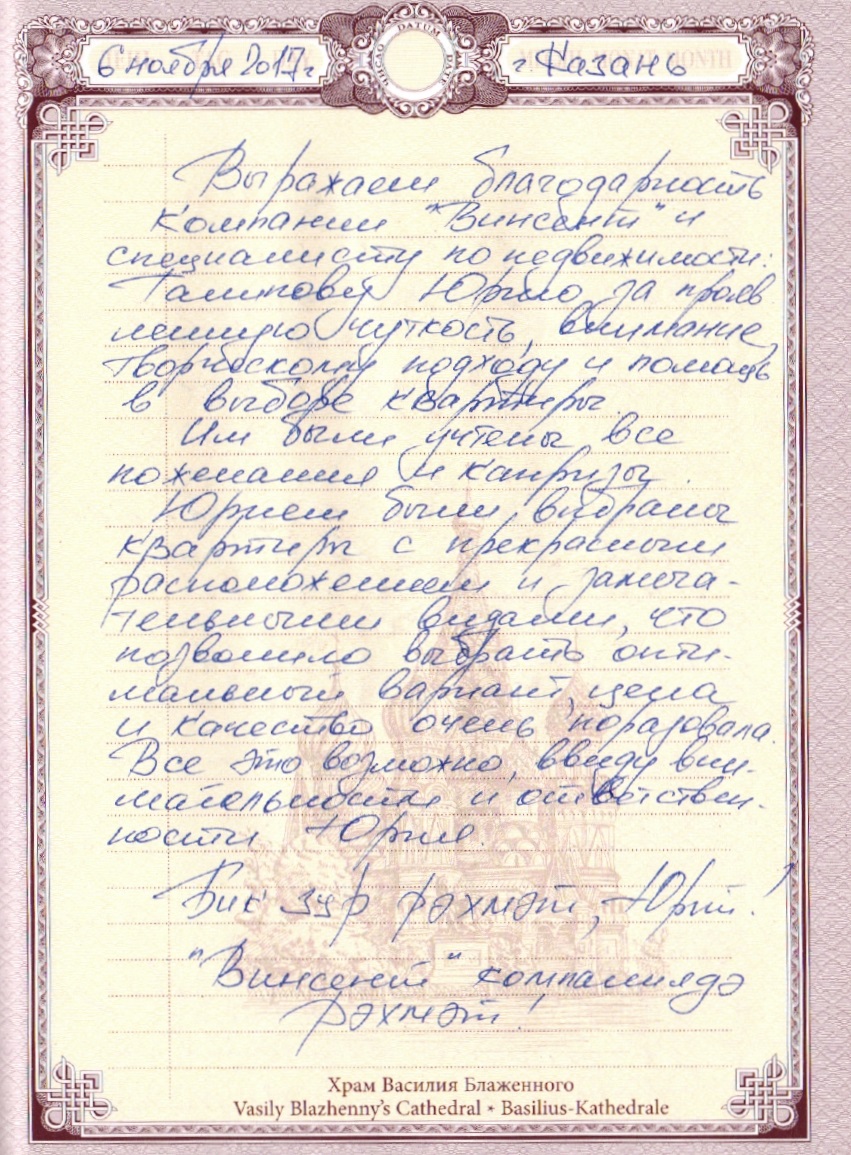 6 ноября 2017г
г. Казань
Выражаем благодарность
компании "Винсент" и
специалисту по недвижимости:
Галиповву Юрию за прояв
ленную чуткость, внимание,
творческому подходу и помощь
в выборе квартиры.
Им были учтены все
пожелания и капризы.
Юрием были выбраны
квартиры с прекрасным
расположением и замеча-
тельными видами, что
позволило выбрать опти-
мальный вариант, цена
и качество очень порадовала.
Все это возможно, ввиду вни-
мательности и ответствен-
ности Юрия.
Бик зур рәхмәт, Юрий!
"Винсент" компаниядә
рәхмәт!
Храм Василия Блаженного
Vasily Blazhenny's Cathedral • Basilius-Kathedrale